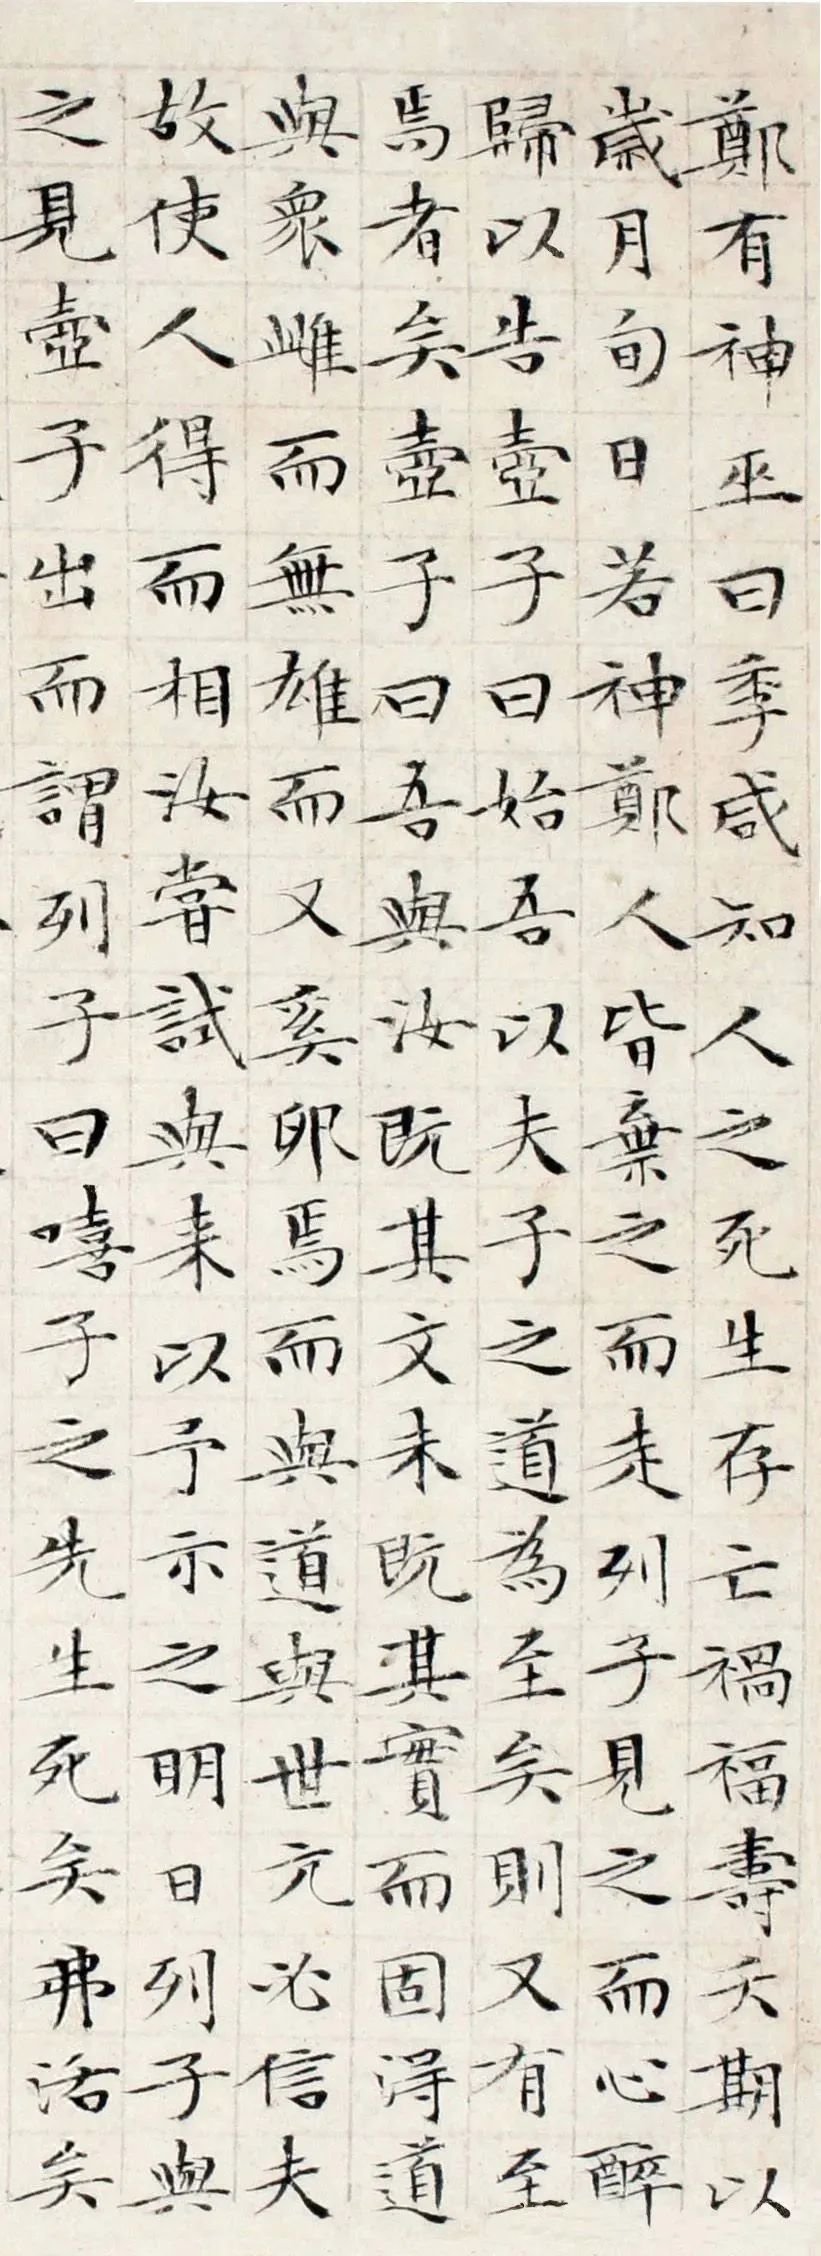 鄭有神巫曰季咸知人之死生存亡禍福壽夭期以
歲月旬日若神鄭人皆棄之而走列子見之而心醉
歸以告壺子曰始吾以夫子之道為至矣則又有至
焉者矣壺子曰吾與汝既其文未既其實而固得道
與衆雌而無雄而又奚卵焉而與道與世亢必信夫
故使人得而相汝嘗試與来以予示之明日列子與
之見壺子出而謂列子曰嘻子之先生死矣弗活矣